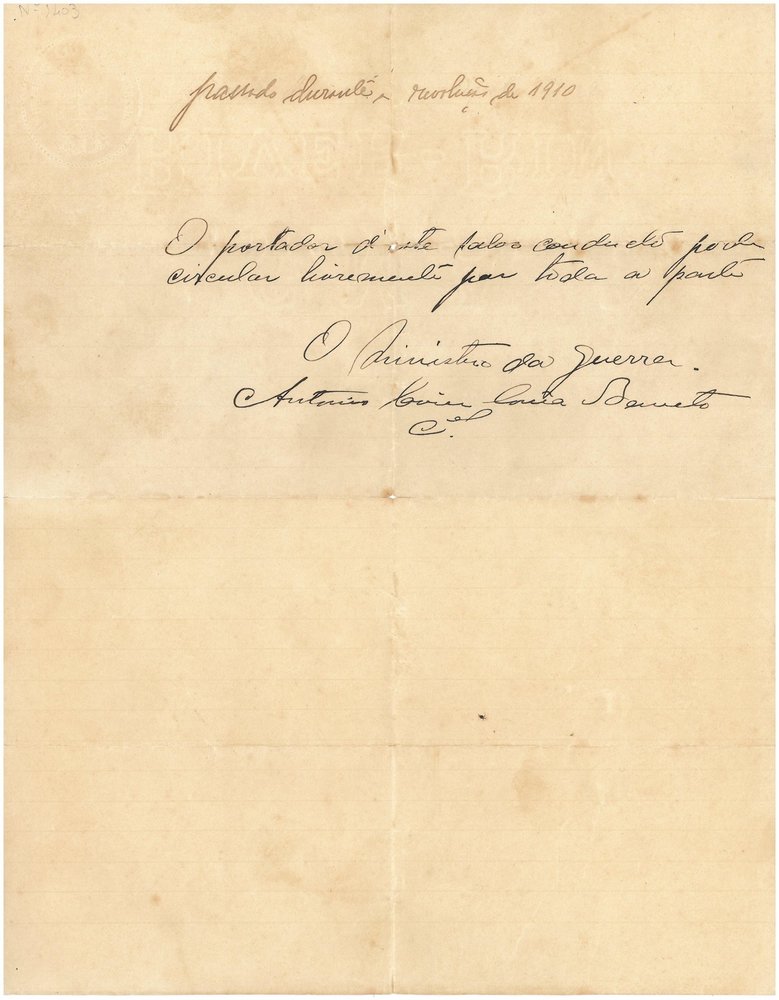 Nº 1403
passado durante a revolução de 1910
O portador d'este salvo conducto pode
circular livremente por toda a parte
O Ministro da Guerra.
Antonio Xavier Correia Barreto
Cel.